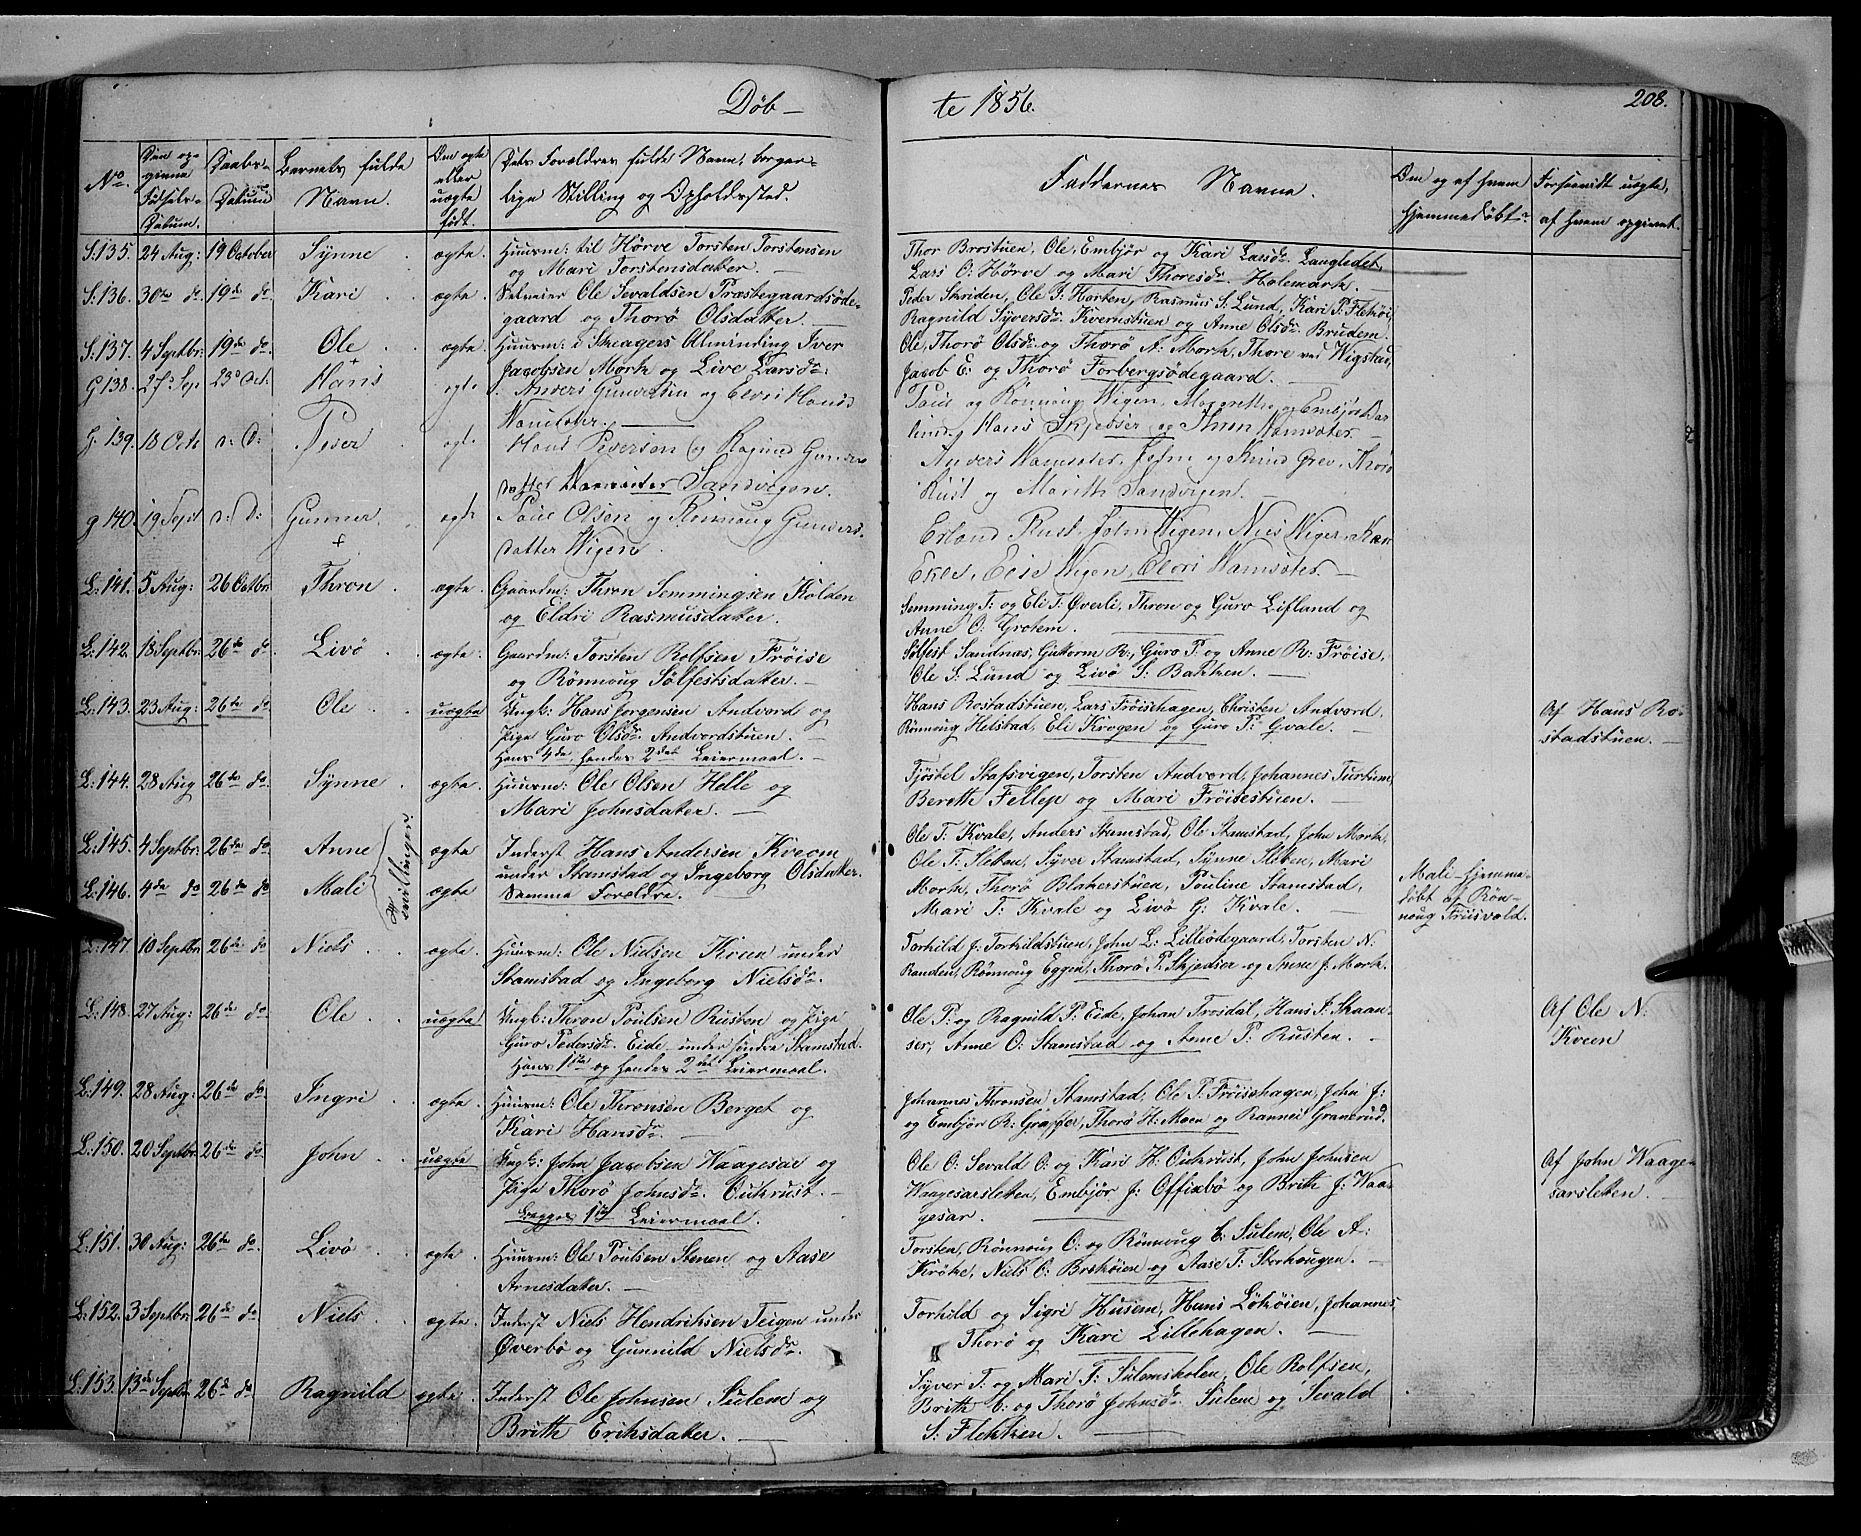 Døb-
te 1856.
208.
No.
Den op-
givne
Fødsels-
Datum.
Daabs-
Datum
Barnets fulde
Navn.
Om ægte
eller
uægte
født.
Dets Forældres fulde Navn, borger-
lige Stilling og Opholdssted.
Faddernes Navne.
Om og af hvem
hjemmedøbt.
Forsaavidt uægte,
af hvem opgivet.
S:135. 24 Aug: 19 October Synne ægte. Huusm: til Hørve Torsten Torstensen
og Mari Torstensdatter. —
Thor Brostuen, Ole, Embjør og Kari Larsdr. Langledet,
Lars O: Hørve og Mari Thoresdr. Holemark. —
S:136. 30te do 19de do Kari ægte. Selveier Ole Sevaldsen Præstegaardsøde-
gaard og Thorø Olsdatter. —
Peder Skriden, Ole J: Horten, Rasmus S. Lund, Kari P: Flekøi,
Ragnild Syversdr. Kvernstuen og Anne Olsdr. Brudem.
S:137. 4 Septbr: 19de do Ole ægte. Huusm: i Skeagers Almending Iver
Jacobsen Mork og Live Larsdr.
Ole, Thorø Olsdr. og Thorø A: Mork, Thore ved Wigstad,
Jacob E: og Thorø Forbergsødegaard. —
G 138. 27: Sep 23d Oct: Hans + ægte Anders Gundersen og Eldri Hansd
Vamsæter. —
Paul og Rønnoug Wigen, Magrethe og Embjør
Hans Skjedser og Thron Vamsæter. —
G: 139. 18 Octo d: D: Peder ægte Hans Pedersen og Ragnild Gunders
datter Sandvigen.
Anders Vamsæter, John og Knud Grev, Thorø
Rust og Marith Sandvigen.
g 140. 19 Sept d: D: Gunner + ægte Paul Olsen og Rønnoug Gunders-
datter Wigen.
Erland Rust, John Wigen, Niels Wigen, Kari
Ekle, Elie Wigen, Eldri Vamsæter. —
L:141. 5 Aug: 26 Octbr: Thron ægte. Gaardm: Thron Semmingsen Kolden
og Eldri Rasmusdatter.
Semming T: og Eli T: Øverli, Thron og Guro Lifland og
Anne O: Grotem.
L:142. 18 Septbr: 26de do. Livø ægte Gaardm: Torsten Rolfsen Frøise
og Rønnoug Solfestsdatter. —
Solfest Sandnæs, Guttorm R:, Guro P: og Anne R: Frøise,
Ole S: Lund og Livø S: Bakken. —
L:143. 23 Aug: 26de do Ole uægte Ungk: Hans Jørgensen Andvord og
Pige Guro Olsdr. Andvordstuen.
Hans 4de, hendes 2det Leiermaal. —
Hans Rostadstuen, Lars Frøishagen, Christen Andvord,
Rønnoug Helstad, Eli Krogen og Guro P: Gvale. —
Af Hans Ro-
stadstuen. —
L:144. 28 Aug 26de do. Synne ægte. Huusm: Ole Olsen Helle og
Mari Johnsdater. —
Tjøstel Stafsvigen, Torsten Andvord, Johannes Turtum,
Berethe Fellep og Mari Frøisestuen. —
L:145. 4 Septbr: 26de do Anne ægte Inderst Hans Andersen Kveom
under Stamstad og Ingeborg Olsdatter.
Ole T: Kvale, Anders Stamstad, Ole Stamstad, John Mork,
Ole T: Sletten, Syver Stamstad, Synne Sletten, Mari
L:146. 4de do 26de do Mali ægte Samme Forældre.
Tvillinger
Mork, Thorø Blakerstuen, Pouline Stamstad,
Mari T: Kvale og Livø G: Kvale. —
Mali hjemme-
døbt af Røn-
noug Friisvold.
L:147. 10 Septbr: 26de do Niels ægte. Huusm: Ole Nielsen Kveen under
Stamstad og Ingeborg Nielsdr.
Torhild J: Torhildstuen, John L: Lilleødegaard, Torsten N:
Randen, Rønnoug Eggen, Thorø P: Skjedser og Anne J: Mork.
L:148. 27 Aug: 26de do Ole uægte Ungk: Thron Poulsen Rusten og Pige
Guro Pedersdr. Eide under søndre Stamstad.
Hans 1ste og hendes 2det Leiermaal.
Ole P: og Ragnild P: Eide, Johan Trosdal, Hans J: Skaan-
ser, Anne O: Stamstad og Anne P: Rusten. —
Af Ole N:
Kveen
L:149. 28 Aug: 26de do Ingri ægte. Huusm: Ole Thronsen Berget og
Kari Hansdr. —
Johannes Thronsen Stamstad, Ole P: Frøishagen, John J:
og Embjør R: Graffer, Thorø H: Moen og Rannei Granerud.
L:150. 20 Septbr: 26de do John uægte Ungk: John Jacobsen Waagesar og
Pige Thorø Johnsdr. Outrust. —
Begges 1ste Leiermaal.
Ole O: Sevald O: og Kari H: Outrust, John Johnsen
Waagesarsletten, Embjør J: Offixbø og Brith J: Waa-
gesar.
Af John Waage-
sarsletten. —
L:151. 30 Aug: 26de do. Livø ægte. Huusm: Ole Poulsen Stenen og Aase
Arnesdater. —
Torsten, Rønnoug O: og Rønnoug E: Sulem, Ole A:
Krøke, Niels O: Brekøien og Aase T: Storhougen. —
L:152. 3 Septbr: 26de do Niels ægte. Inderst Niels Hendriksen Teigen under
Øverbø og Gunnild Nielsdr.
Torhild og Sigri Husem, Hans Løkøien, Johannes,
Thorø og Kari Lillehagen. —
L:153. 13de Septbr. 26de do Ragnild ægte. Inderst Ole Johnsen Sulem og
Brith Eriksdater. —
Syver T: og Mari T: Sulemskolen, Ole Rolfsen,
Brith E: og Thorø Johnsdr. Sulem og Sevald
S: Flekken. —